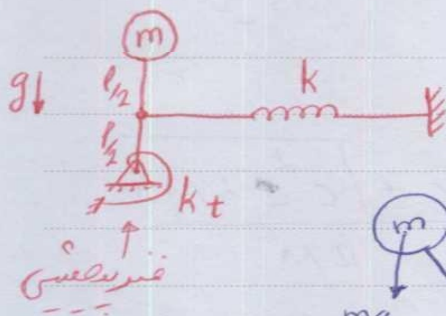 m
g
l/2
k
l/2
kt
فنر پیچشی
m
mg